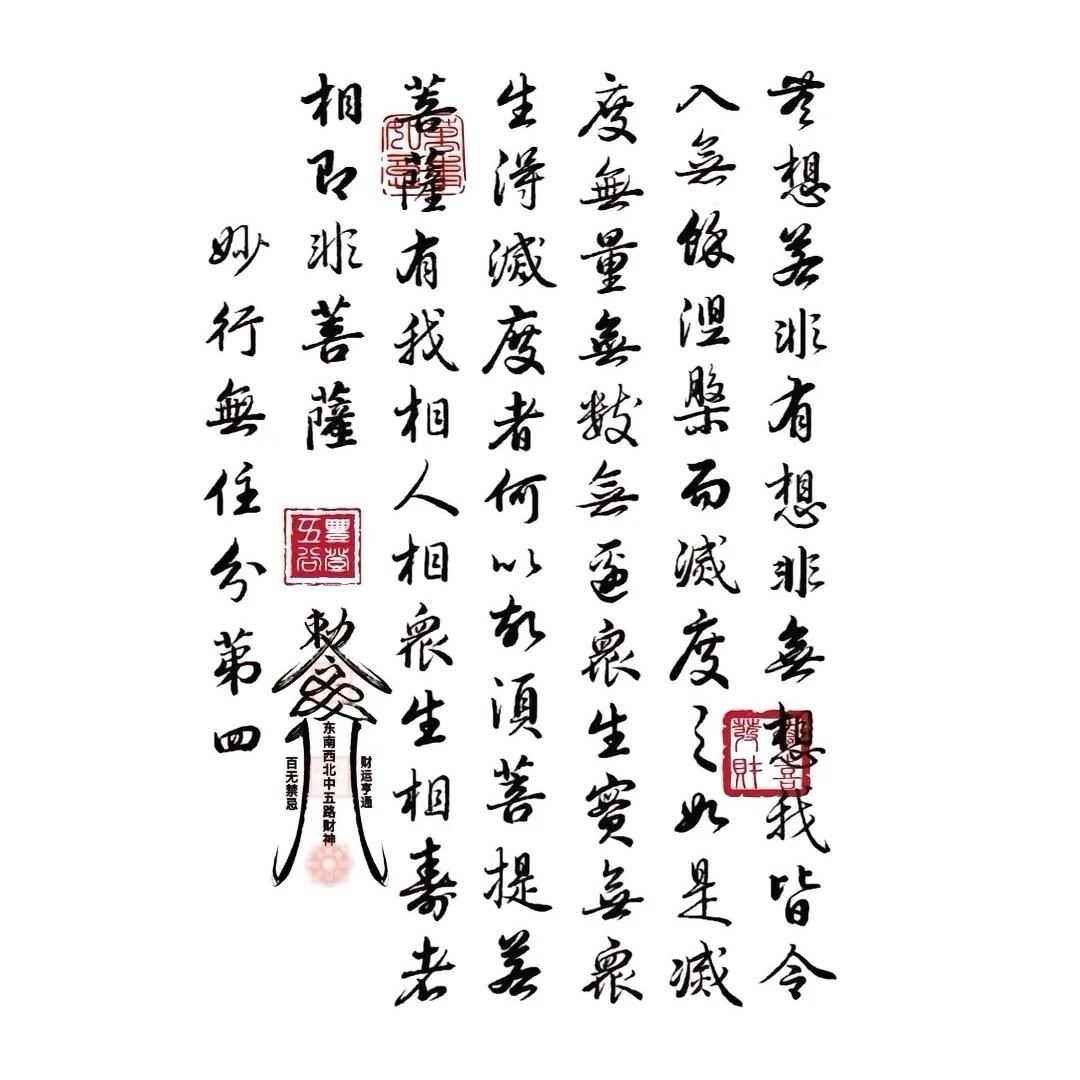 无想若非有想非無想我皆令
入無餘涅槃而滅度之如是滅
度無量無數無邊衆生實無衆
生得滅度者何以故須菩提若
菩薩有我相人相衆生相壽者
相即非菩薩
妙行無住分第四
萬事如意
豐登五谷
發財
敕令
东南西北中五路财神
财运亨通
百无禁忌